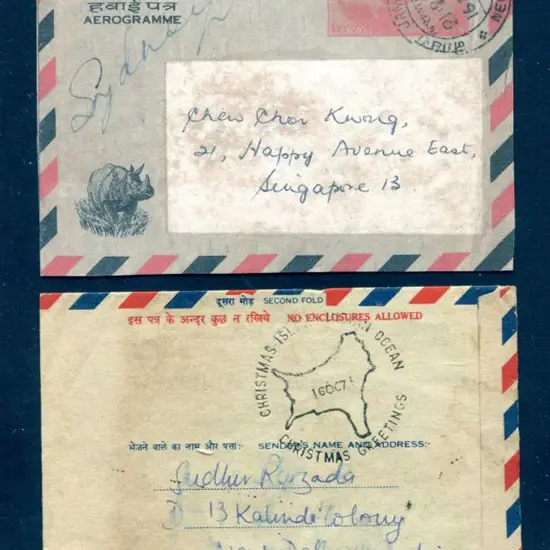 हवाई पत्र
AEROGRAMME
Sydney
Chew Chor Kwong,
21, Happy Avenue East,
Singapore 13.
दूसरा मोड़ SECOND FOLD
इस पत्र के अन्दर कुछ न रखिये NO ENCLOSURES ALLOWED
CHRISTMAS ISLAND INDIAN OCEAN
16 OC 71
CHRISTMAS GREETINGS
भेजने वाले का नाम और पता:- SENDER'S NAME AND ADDRESS:-
Sudhir
D 13 Kalindi Colony